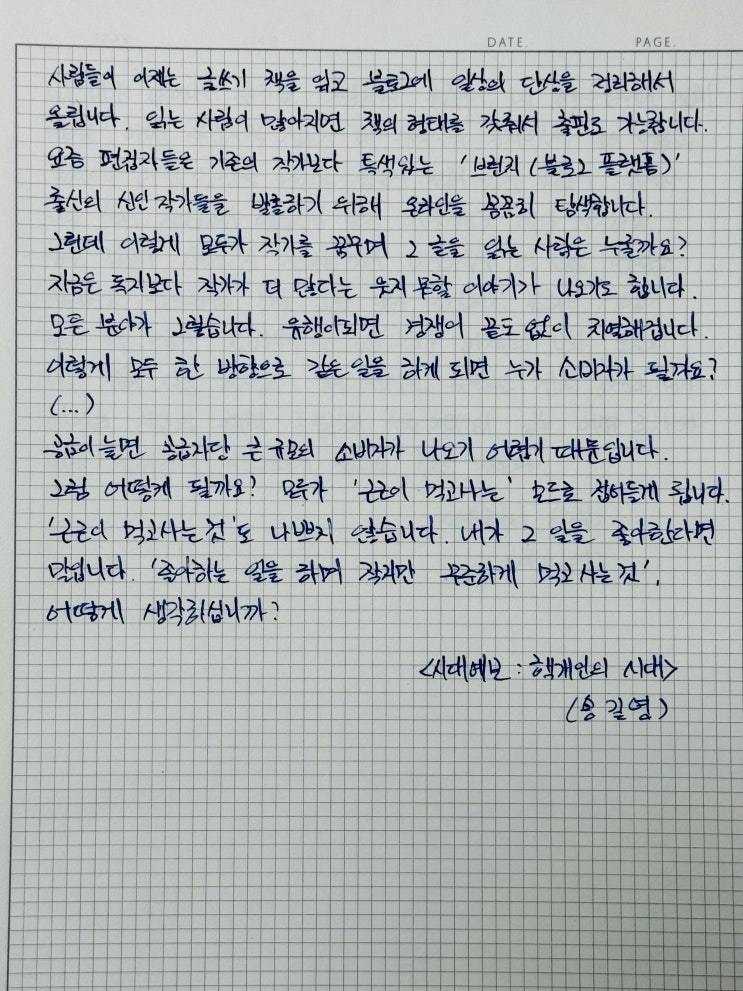 DATE. PAGE.
사람들이 이제는 글쓰기 책을 읽고 블로그에 일상의 단상을 정리해서
올립니다. 읽는 사람이 많아지면 책의 형태를 갖춰서 출판도 가능합니다.
요즘 편집자들은 기존의 작가보다 특색있는 '브런치(블로그 플랫폼)'
출신의 신인 작가들을 발굴하기 위해 온라인을 꼼꼼히 탐색합니다.
그런데 이렇게 모두가 작가를 꿈꾸며 그 글을 읽는 사람은 누굴까요?
지금은 독자보다 작가가 더 많다는 웃지 못할 이야기가 나오기도 합니다.
모든 분야가 그렇습니다. 유행이되면 경쟁이 끝도 없이 치열해집니다.
이렇게 모두 한 방향으로 같은 일을 하게 되면 누가 소비자가 될까요?
(...)
공급이 늘면 공급자당 큰 규모의 소비자가 나오기 어렵기 때문입니다.
그럼 어떻게 될까요? 모두가 '근근이 먹고사는' 모드로 접어들게 됩니다.
'근근이 먹고사는 것'도 나쁘지 않습니다. 내가 그 일을 좋아한다면
말입니다. '좋아하는 일을 하며 작지만 꾸준하게 먹고 사는 것',
어떻게 생각하십니까?
<시대예보 : 핵개인의 시대>
(송길영)